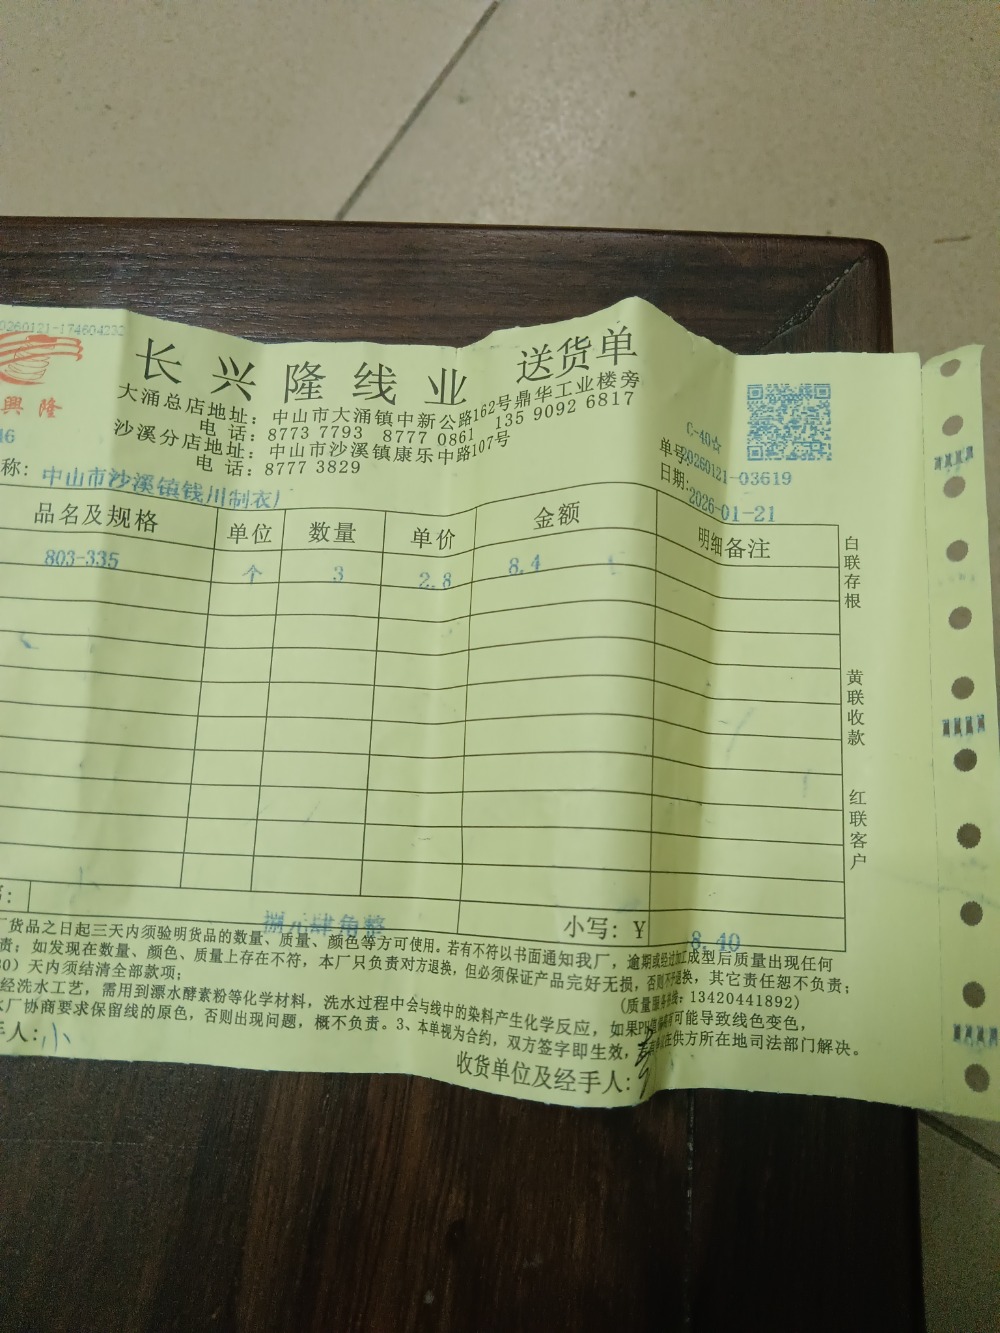 0260121-174604232
長興隆线业 送货单
興隆
大涌总店地址：中山市大涌镇中新公路162号鼎华工业楼旁
电 话：8773 7793 8777 0861 135 9092 6817
沙溪分店地址：中山市沙溪镇康乐中路107号
电 话：8777 3829
C-40☆
单号:20260121-03619
日期:2026-01-21
称：中山市沙溪镇钱川制衣厂
品名及规格 单位 数量 单价 金额 明细备注
803-335 个 3 2.8 8.4
白联存根
黄联收款
红联客户
捌元肆角整 小写：¥ 8.40
货品之日起三天内须验明货品的数量、质量、颜色等方可使用。若有不符以书面通知我厂，逾期或经过加工成型后质量出现任何
责；如发现在数量、颜色、质量上存在不符，本厂只负责对方退换，但必须保证产品完好无损，否则不予退换，其它责任恕不负责；
30）天内须结清全部款项； （质量服务热线：13420441892）
经洗水工艺，需用到漂水酵素粉等化学材料，洗水过程中会与线中的染料产生化学反应，如果PH值 可能导致线色变色，
厂协商要求保留线的原色，否则出现问题，概不负责。3、本单视为合约，双方签字即生效， 在供方所在地司法部门解决。
手人：小
收货单位及经手人：